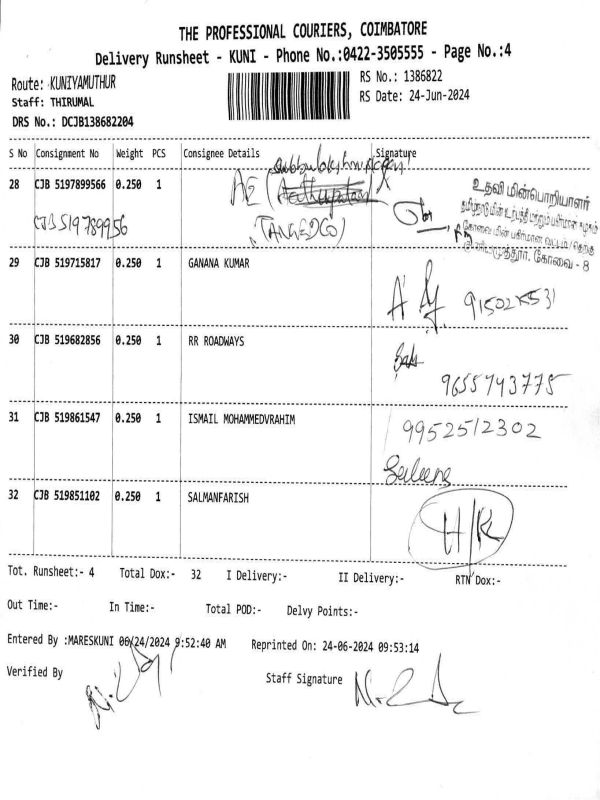 THE PROFESSIONAL COURIERS, COIMBATORE
Delivery Runsheet - KUNI - Phone No.:0422-3505555 - Page No.:4
Route: KUNIYAMUTHUR
Staff: THIRUMAL
DRS No.: DCJB138682204
RS No.: 1386822
RS Date: 24-Jun-2024
S No Consignment No Weight PCS Consignee Details Signature
28 CJB 5197899566 0.250 1 AE
CJB519789956 (TANGEDCO)
உதவி மின்பொறியாளர்
கோவை - 8
29 CJB 519715817 0.250 1 GANANA KUMAR
30 CJB 519682856 0.250 1 RR ROADWAYS
9655743775
31 CJB 519861547 0.250 1 ISMAIL MOHAMMEDVRAHIM 9952512302
32 CJB 519851102 0.250 1 SALMANFARISH
Tot. Runsheet:- 4 Total Dox:- 32 I Delivery:- II Delivery:- RTN Dox:-
Out Time:- In Time:- Total POD:- Delvy Points:-
Entered By :MARESKUNI 06/24/2024 9:52:40 AM Reprinted On: 24-06-2024 09:53:14
Verified By Staff Signature